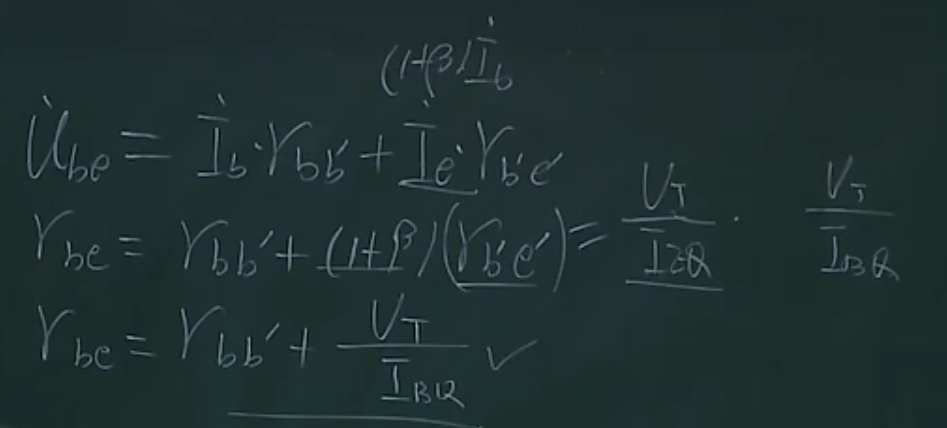 (1+β)İb
U̇be = İb·rbb′ + İe·rb′e′
rbe = rbb′ + (1+β)(rb′e′) = UT/IEQ · UT/IBQ
rbe = rbb′ + UT/IBQ ✓